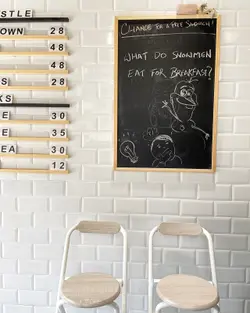 STLE
OWN 28
48
48
S 28
KS
E 30
E 35
EA 30
12
CHANCE FOR A FREE SANDWICH!
WHAT DO SNOWMEN
EAT FOR BREAKFAST?